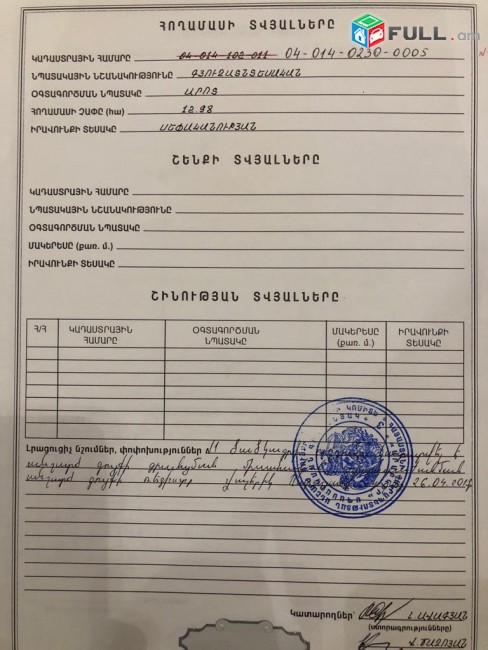 FULL.am
ՀՈՂԱՄԱՍԻ ՏՎՅԱԼՆԵՐԸ
ԿԱԴԱՍՏՐԱՅԻՆ ՀԱՄԱՐԸ 04-014-102-011 04-014-0230-0005
ՆՊԱՏԱԿԱՅԻՆ ՆՇԱՆԱԿՈՒԹՅՈՒՆԸ ԳՅՈՒՂԱՏՆՏԵՍԱԿԱՆ
ՕԳՏԱԳՈՐԾՄԱՆ ՆՊԱՏԱԿԸ ԱՐՈՏ
ՀՈՂԱՄԱՍԻ ՉԱՓԸ (հա) 12.98
ԻՐԱՎՈՒՆՔԻ ՏԵՍԱԿԸ ՍԵՓԱԿԱՆՈՒԹՅԱՆ
ՇԵՆՔԻ ՏՎՅԱԼՆԵՐԸ
ԿԱԴԱՍՏՐԱՅԻՆ ՀԱՄԱՐԸ
ՆՊԱՏԱԿԱՅԻՆ ՆՇԱՆԱԿՈՒԹՅՈՒՆԸ
ՕԳՏԱԳՈՐԾՄԱՆ ՆՊԱՏԱԿԸ
ՄԱԿԵՐԵՍԸ (քառ. մ.)
ԻՐԱՎՈՒՆՔԻ ՏԵՍԱԿԸ
ՇԻՆՈՒԹՅԱՆ ՏՎՅԱԼՆԵՐԸ
Հ/Հ ԿԱԴԱՍՏՐԱՅԻՆ ՀԱՄԱՐԸ ՕԳՏԱԳՈՐԾՄԱՆ ՆՊԱՏԱԿԸ ՄԱԿԵՐԵՍԸ (քառ. մ.) ԻՐԱՎՈՒՆՔԻ ՏԵՍԱԿԸ
Լրացուցիչ նշումներ, փոփոխություններ
անշարժ գույքի
անշարժ գույքի 26.04.2017
Կատարողներ՝ Լ.ԱՎԱԳՅԱՆ
(ստորագրությունները)